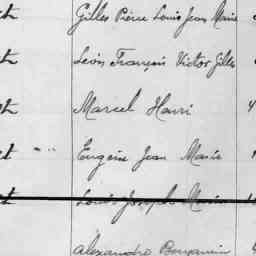 Gilles Pierre Louis Jean Marie
Léon François Victor Gilles
Marcel Henri
" " Eugène Jean Marie
Louis Joseph Marie
Alexandre Benjamin